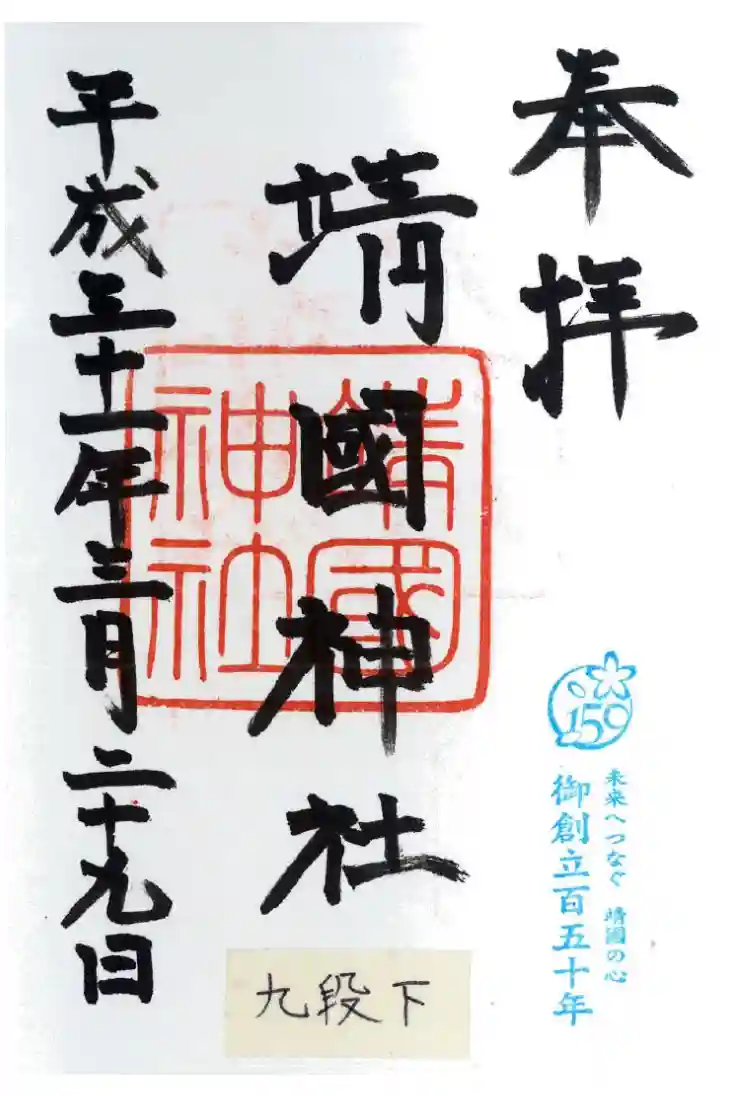 奉拝
靖國神社
靖國神社
平成三十一年三月二十九日
150
未来へつなぐ 靖國の心
御創立百五十年
九段下